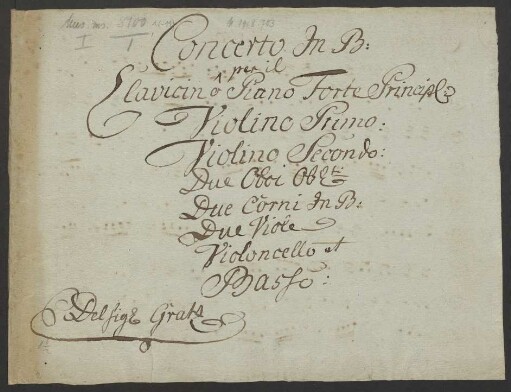 Mus. ms.
I
Concerto In B:
per il
Clavicino Piano Forte Principl:
Violino Primo:
Violino Secondo:
Due Oboi Oblti
Due Corni In B:
Due Viole
Violoncello et
Basso:
Del Sigr Gratz